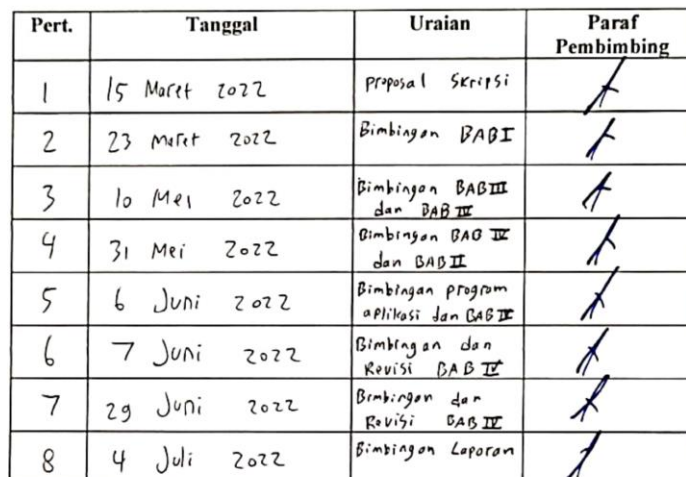 Pert. Tanggal Uraian Paraf Pembimbing
1 15 Maret 2022 Proposal Skripsi
2 23 Maret 2022 Bimbingan BAB I
3 10 Mei 2022 Bimbingan BAB III
dan BAB IV
4 31 Mei 2022 Bimbingan BAB IV
dan BAB II
5 6 Juni 2022 Bimbingan program
aplikasi dan BAB IV
6 7 Juni 2022 Bimbingan dan
Revisi BAB IV
7 29 Juni 2022 Bimbingan dan
Revisi BAB IV
8 4 Juli 2022 Bimbingan Laporan